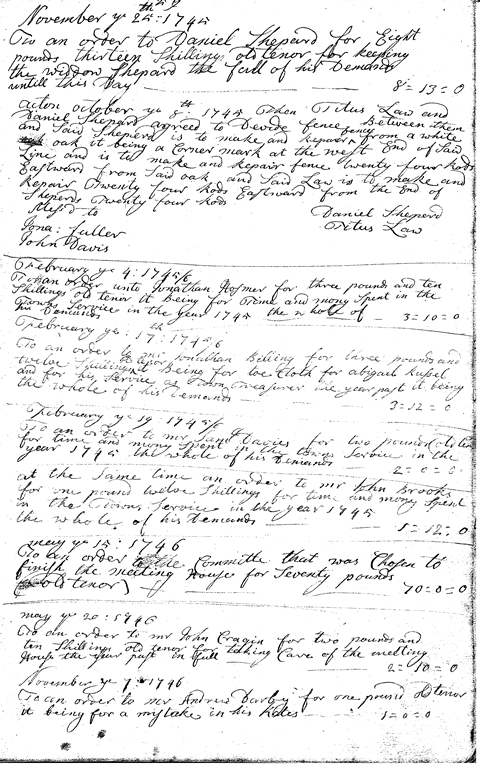 November ye 25th: 1745
To an order to Daniel Sheperd for Eight
pounds thirteen Shillings old tenor for keeping
the widdow Sheperd the full of his Demands
untill this Day 8 = 13 = 0
acton october ye 8th 1745 Then Titus Law and
Daniel Sheperd agreed to Devide fence Between them
and Said Sheperd is to make and Repaire fence from a white
oak it being a Corner mark at the west End of Said
Line and is to make and Repair fence twenty four Rods
Eastward from Said oak and Said Law is to make and
Repair Twenty four Rods Eastward from the End of
Sheperds Twenty four Rods
Daniel Sheperd
to
Titus Law
Jona: Fuller
John Davis
February ye 4: 1745/6
To an order unto Jonathan Hosmer for three pounds and ten
Shillings old tenor it Being for Time and mony Spent in the
Towns Service in the year 1745 the whole of
his Demands 3 = 10 = 0
February ye: 17th: 1745/6
To an order to mr Jonathan Billing for three pounds and
twelve Shillings it Being for Cloth for abigail
and for his Service as Town Treasurer the year past it being
the whole of his Demands 3 = 12 = 0
February ye 19 1745/6
To an order to mr Davies for two pounds old ten
for time and mony Spent in the towns Service in the
year 1745 the whole of his Demands 2 = 0 = 0
at the Same time an order to mr John Brooks
for one pound twelve Shillings for time and mony Spent
in the Towns Service in the year 1745
the whole of his Demands 1 = 12 = 0
may ye 15: 1746
To an order to the Committe that was Chosen to
finish the meeting House for Seventy pounds
old tenor) 70 = 0 = 0
may ye 20: 1746
To an order to mr John Cragin for two pounds and
ten Shillings old tenor for taking Care of the meeting
House the year past in full 2 = 10 = 0
November ye 7: 1746
To an order to mr Andrew Darby for one pound old tenor
it being for a mistake in his Rates 1 = 0 = 0